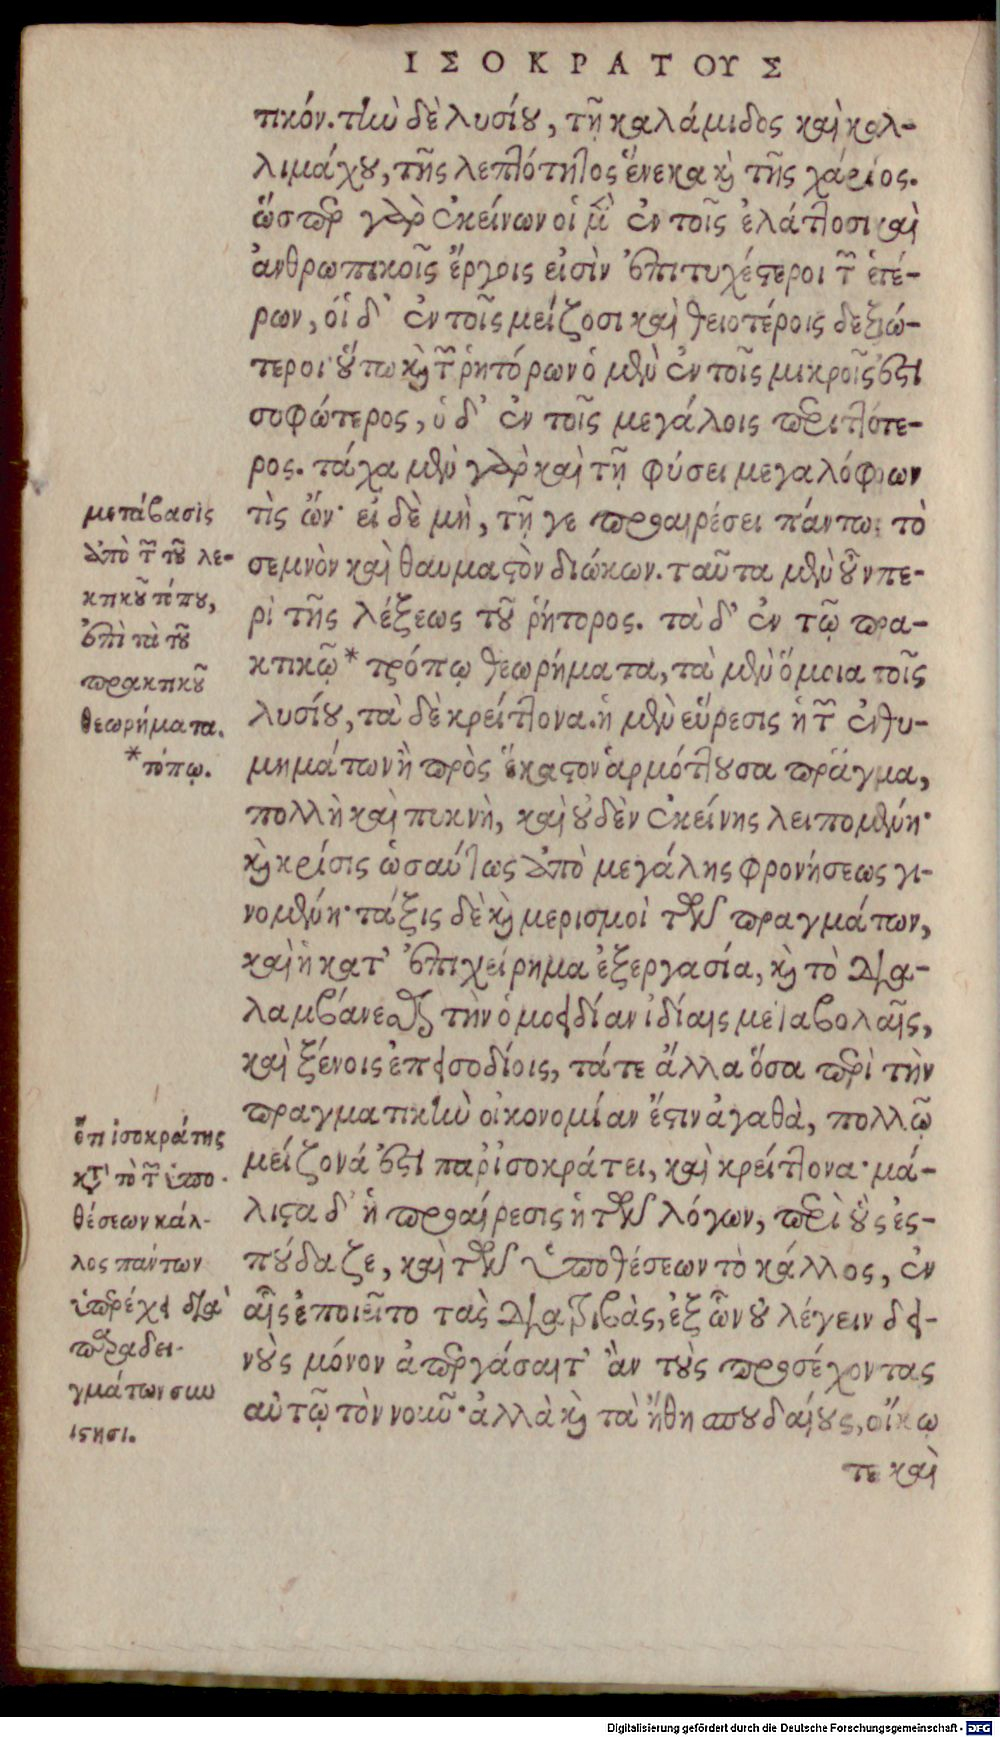 ΙΣΟΚΡΑΤΟΥΣ
τικόν. τὴν δὲ λυσίου, τῇ καλάμιδος καὶ καλ-
λιμάχου, τῆς λεπτότητος ἕνεκα καὶ τῆς χάριτος.
ὥσπερ γὰρ ἐκείνων οἱ μὲν ἐν τοῖς ἐλάττοσι καὶ
ἀνθρωπικοῖς ἔργοις εἰσὶν ἐπιτυχέστεροι τῶν ἑτέ-
ρων, οἱ δ' ἐν τοῖς μείζοσι καὶ θειοτέροις δεξιώ-
τεροι· οὕτω καὶ τῶν ῥητόρων ὁ μὲν ἐν τοῖς μικροῖς ἐστι
σοφώτερος, ὁ δ' ἐν τοῖς μεγάλοις περιττότε-
ρος. τάχα μὲν γὰρ καὶ τῇ φύσει μεγαλόφρων
τὶς ὤν· εἰ δὲ μὴ, τῇ γε προαιρέσει πάντως τὸ
σεμνὸν καὶ θαυμαστὸν διώκων. ταῦτα μὲν οὖν πε-
ρὶ τῆς λέξεως τοῦ ῥήτορος. τὰ δ' ἐν τῷ πρα-
κτικῷ * τρόπῳ θεωρήματα, τὰ μὲν ὅμοια τοῖς
λυσίου, τὰ δὲ κρείττονα. ἡ μὲν εὕρεσις ἡ τῶν ἐνθυ-
μημάτων ἢ πρὸς ἕκαστον ἁρμόττουσα πρᾶγμα,
πολλὴ καὶ πυκνὴ, καὶ οὐδὲν ἐκείνης λειπομένη·
καὶ κρίσις ὡσαύτως ἀπὸ μεγάλης φρονήσεως γι-
νομένη· τάξις δὲ καὶ μερισμοὶ τῶν πραγμάτων,
καὶ ἡ κατ' ἐπιχείρημα ἐξεργασία, καὶ τὸ δια-
λαμβάνεσθαι τὴν ὁμοείδιαν ἰδίαις μεταβολαῖς,
καὶ ξένοις ἐπεισοδίοις, τά τε ἄλλα ὅσα περὶ τὴν
πραγματικὴν οἰκονομίαν ἔστιν ἀγαθὰ, πολλῷ
μείζονά ἐστι παρ' ἰσοκράτει, καὶ κρείττονα· μά-
λιστα δ' ἡ προαίρεσις ἡ τῶν λόγων, περὶ οὓς ἐσ-
πούδαζε, καὶ τῶν ὑποθέσεων τὸ κάλλος, ἐν
αἷς ἐποιεῖτο τὰς διατριβὰς, ἐξ ὧν οὐ λέγειν δει-
νοὺς μόνον ἀπεργάσαιτ' ἂν τοὺς προσέχοντας
αὐτῷ τὸν νοῦν· ἀλλὰ καὶ τὰ ἤθη σπουδαίους, οἴκῳ
τε καὶ
μετάβασις
ἀπὸ τῶν τοῦ λε-
κτικοῦ τόπου,
ἐπὶ τὰ τοῦ
πρακτικοῦ
θεωρήματα.
* τόπῳ.
ὅτι ἰσοκράτης
κατὰ τὸ τῶν ὑπο-
θέσεων κάλ-
λος πάντων
ὑπερέχει διὰ
παραδει-
γμάτων συν
ίστησι.
Digitalisierung gefördert durch die Deutsche Forschungsgemeinschaft - DFG